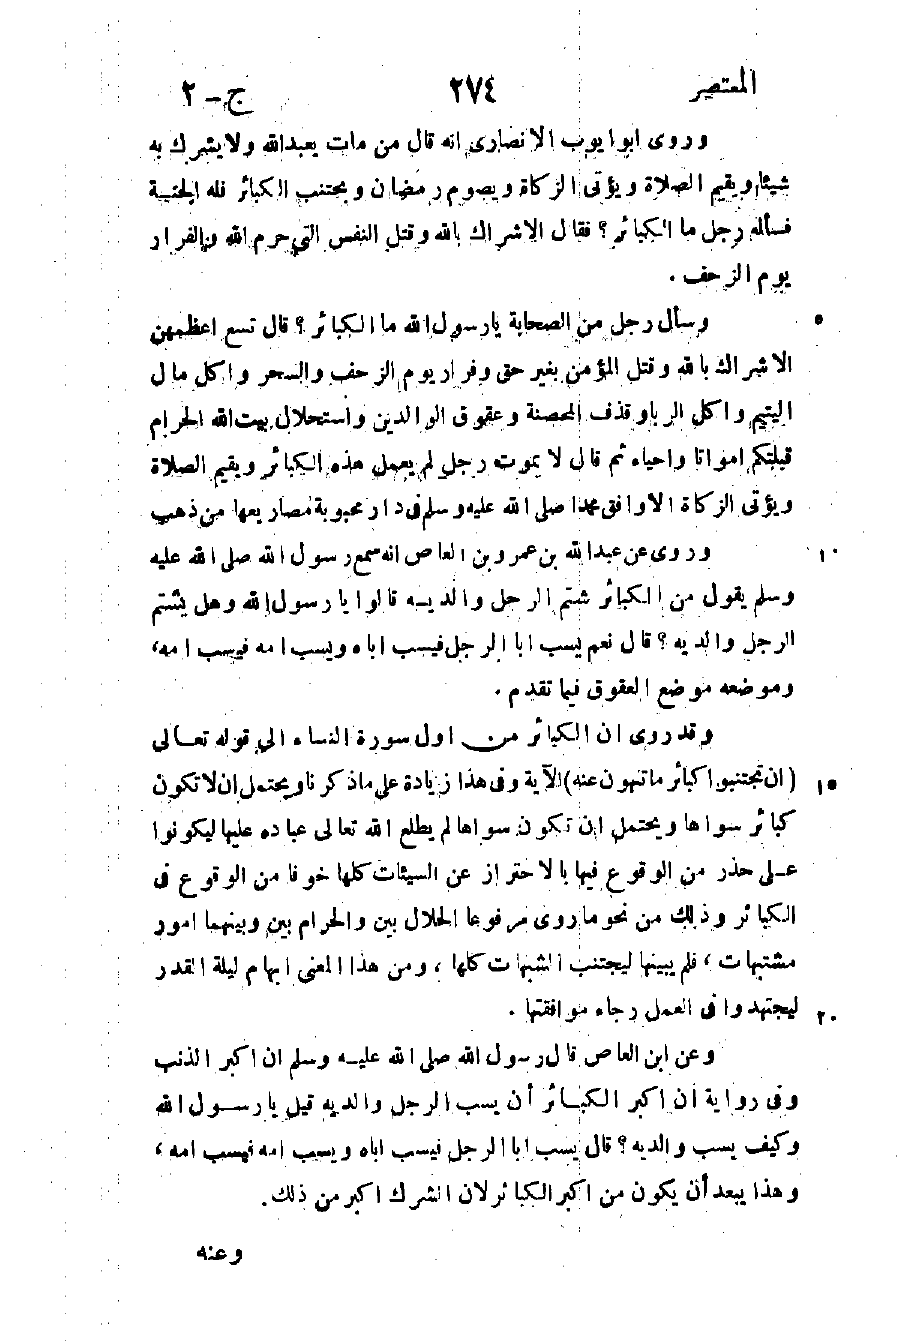 المعتصر ٢٧٤ ج - ٢
وروى ابوايوب الانصارى انه قال من مات يعبدالله ولا يشرك به
شيئا ويقيم الصلاة ويؤتى الزكاة ويصوم رمضان ويجتنب الكبائر فله الجنة
فسأله رجل ما الكبائر؟ فقال الاشراك بالله وقتل النفس التي حرم الله والفرار
يوم الزحف .
وسأل رجل من الصحابة يارسول الله ما الكبائر؟ قال تسع اعظمهن ٥
الاشراك بالله وقتل المؤمن بغير حق وفرار يوم الزحف والسحر واكل مال
اليتيم واكل الربا وقذف المحصنة وعقوق الوالدين واستحلال بيت الله الحرام
قبلتكم امواتا واحياء ثم قال لا يموت رجل لم يعمل هذه الكبائر ويقيم الصلاة
ويؤتى الزكاة الاوافق محمدا صلى الله عليه وسلم فى دار محبوبة مصاريعها من ذهب
وروى عن عبدالله بن عمرو بن العاص انه سمع رسول الله صلى الله عليه ١٠
وسلم يقول من الكبائر شتم الرجل والديه قالوا يا رسول الله وهل يشتم
الرجل والديه؟ قال نعم يسب ابا الرجل فيسب اباه ويسب امه فيسب امه،
وموضعه موضع العقوق فيما تقدم .
وقدروى ان الكبائر من اول سورة النساء الى قوله تعالى
(ان تجتنبوا كبائر ما تنهون عنه) الآية وفى هذا زيادة على ماذكرنا ويحتمل ان لا تكون ١٥
كبائر سواها ويحتمل ان تكون سواها لم يطلع الله تعالى عباده عليها ليكونوا
على حذر من الوقوع فيها بالاحتراز عن السيئات كلها خوفا من الوقوع فى
الكبائر وذلك من نحو ماروى مرفوعا الحلال بين والحرام بين وبينهما امور
مشتبهات، فلم يبينها ليجتنب الشبهات كلها، ومن هذا المعنى ابهام ليلة القدر
ليجتهدوا فى العمل رجاء موافقتها . ٢٠
وعن ابن العاص قال رسول الله صلى الله عليه وسلم ان اكبر الذنب
وفى رواية ان اكبر الكبائر أن يسب الرجل والديه قيل يا رسول الله
وكيف يسب والديه؟ قال يسب ابا الرجل فيسب اباه ويسب امه فيسب امه،
وهذا يبعد أن يكون من اكبر الكبائر لان الشرك اكبر من ذلك.
وعنه